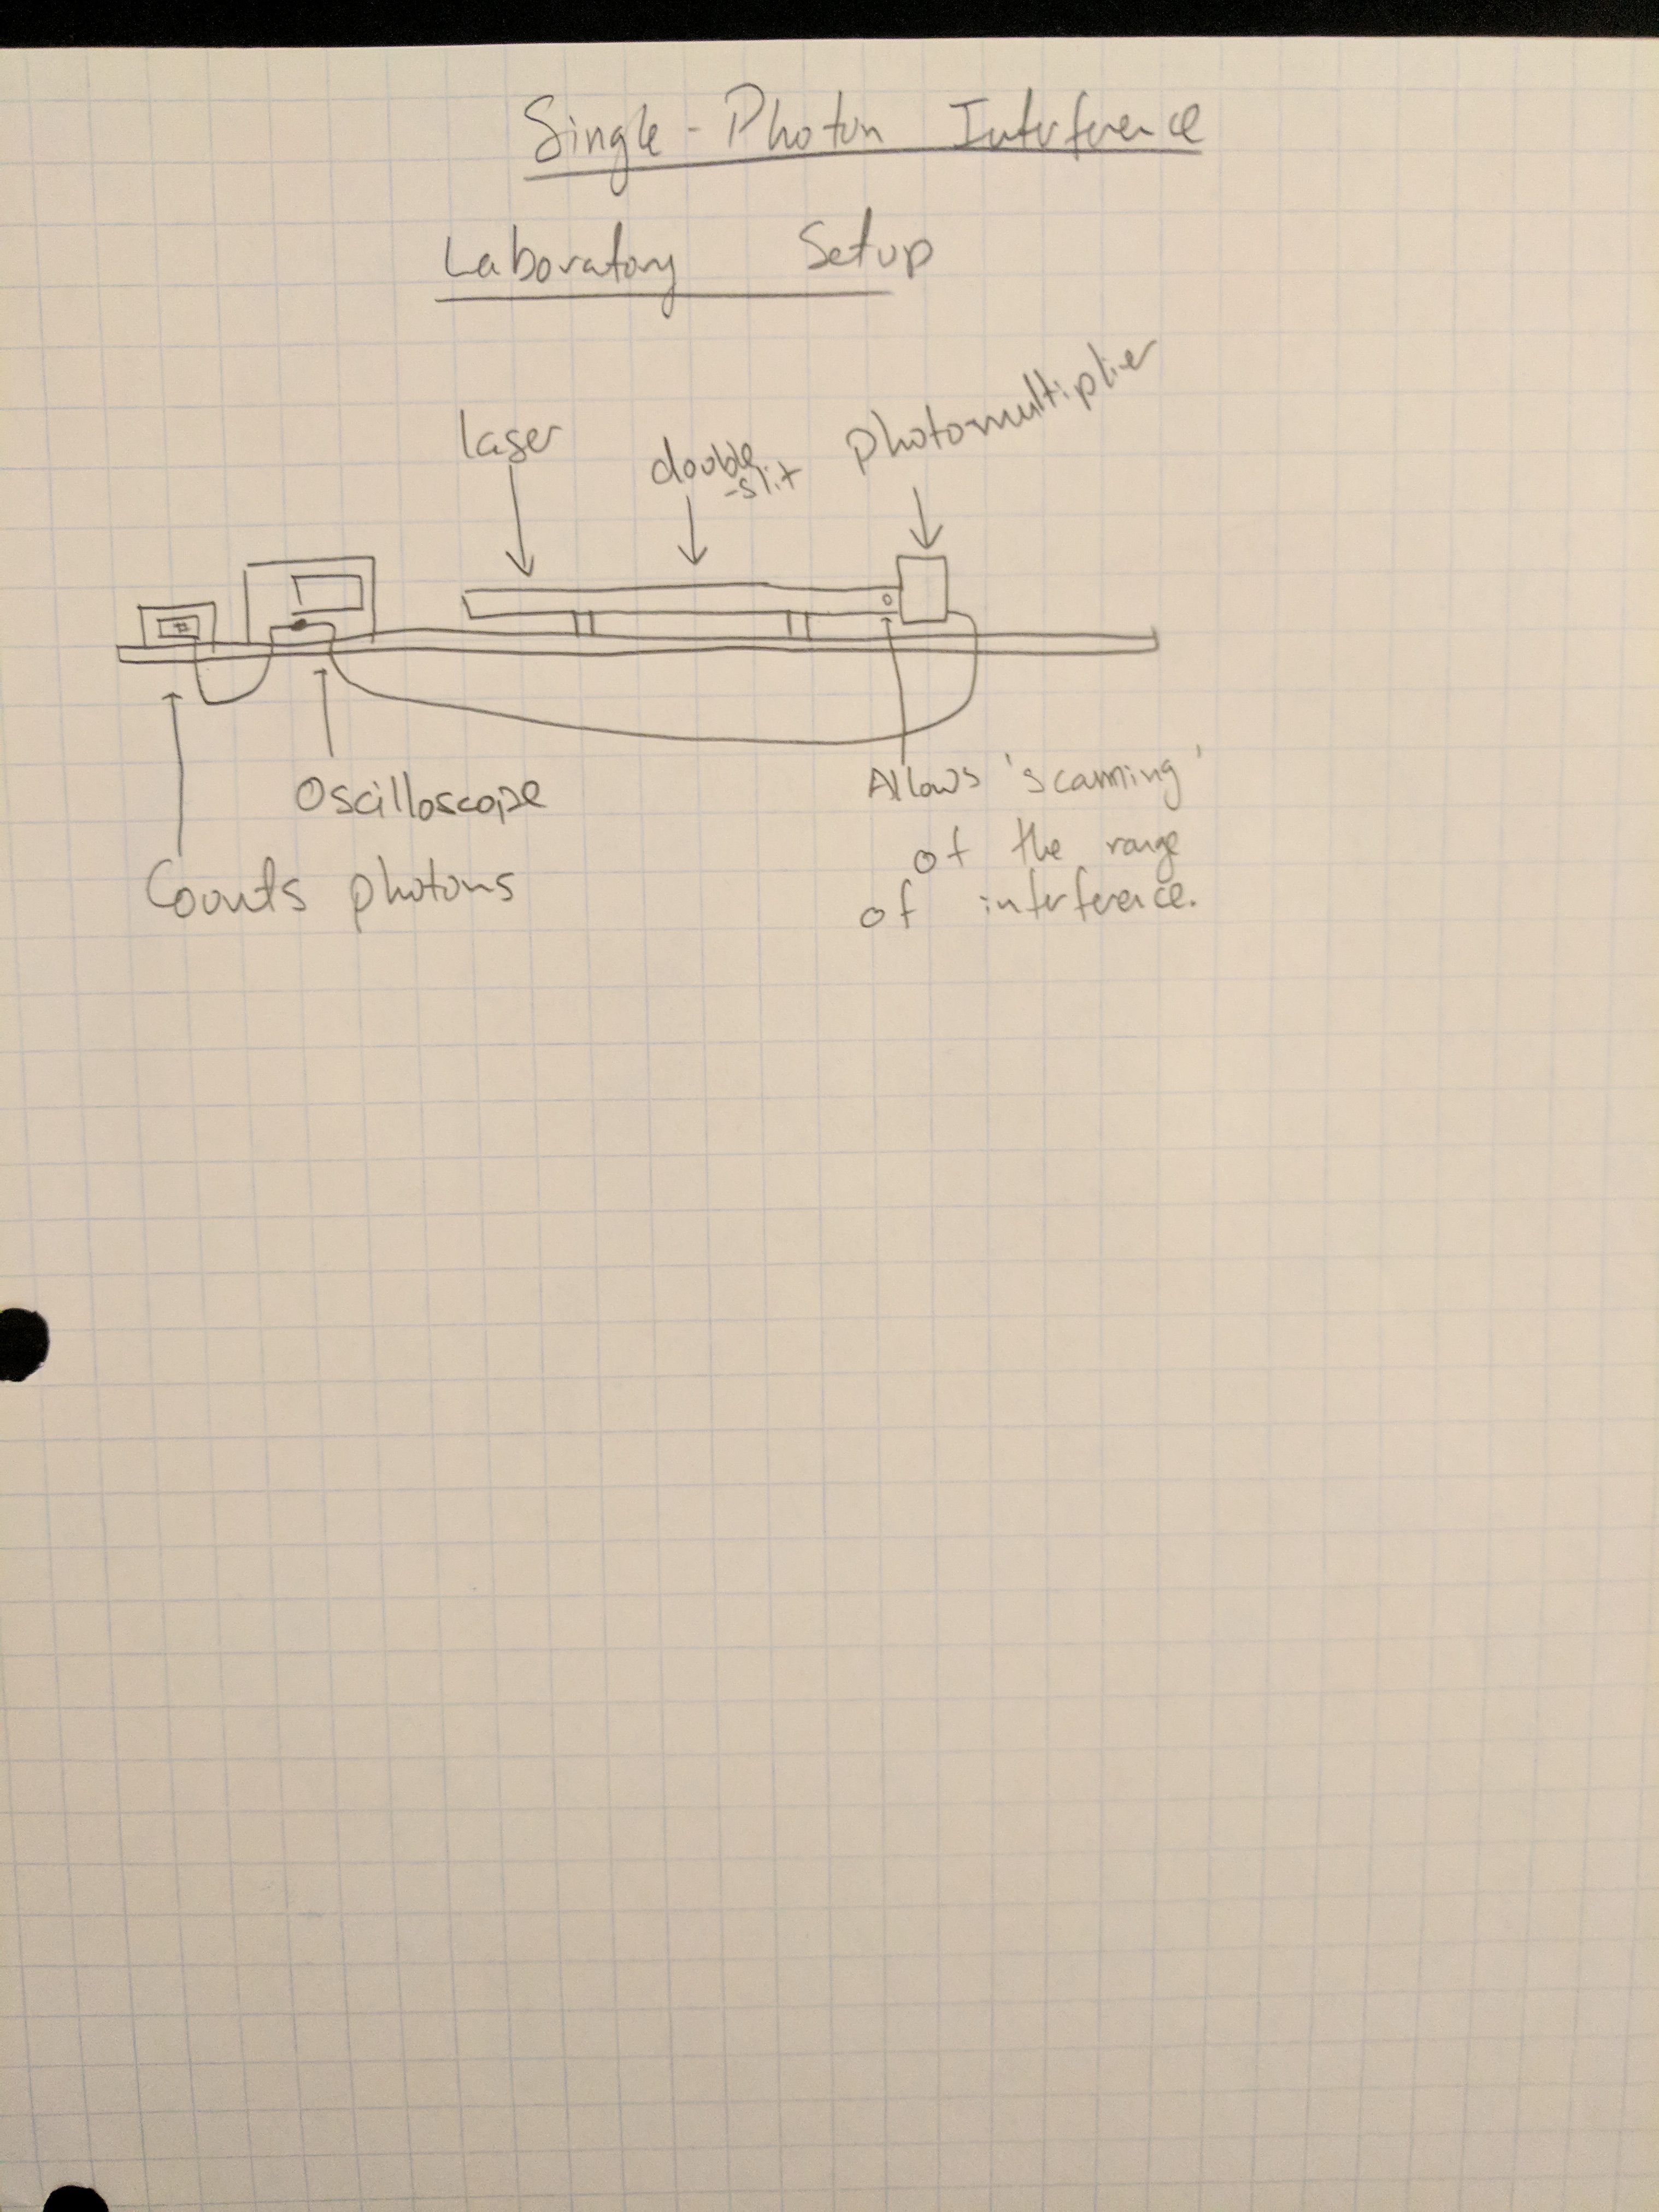 Single-Photon Interference
Laboratory Setup
laser
double
-slit
photomultiplier
Oscilloscope
Counts photons
Allows 'scanning'
of the range
of interference.